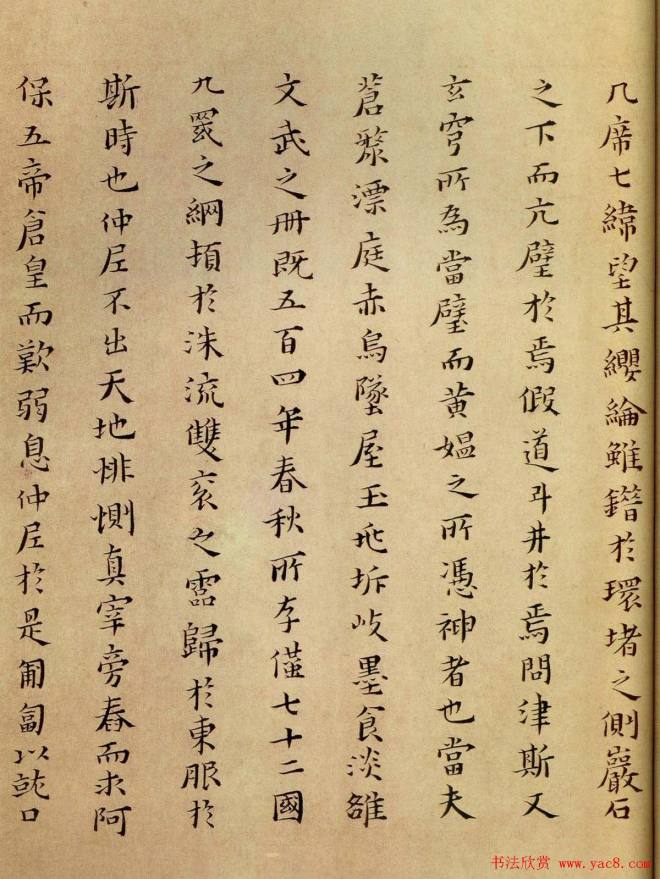 几席七緯望其纓綸鮏鐕於環堵之側巖石
之下而亢壁於焉假道斗井於焉問津斯又
玄穹所為當璧而黃媼之所憑神者也當夫
蒼漦漂庭赤烏墜屋玉飛坼岐墨食淡雒
文武之冊既五百四年春秋所存僅七十二國
九罭之綱頓於洙流雙衮之霝歸於東服於
斯時也仲尼不出天地悱惻真宰旁春而求阿
保五帝倉皇而歎弱息仲尼於是匍匐以就口
书法欣赏 www.yac8.com